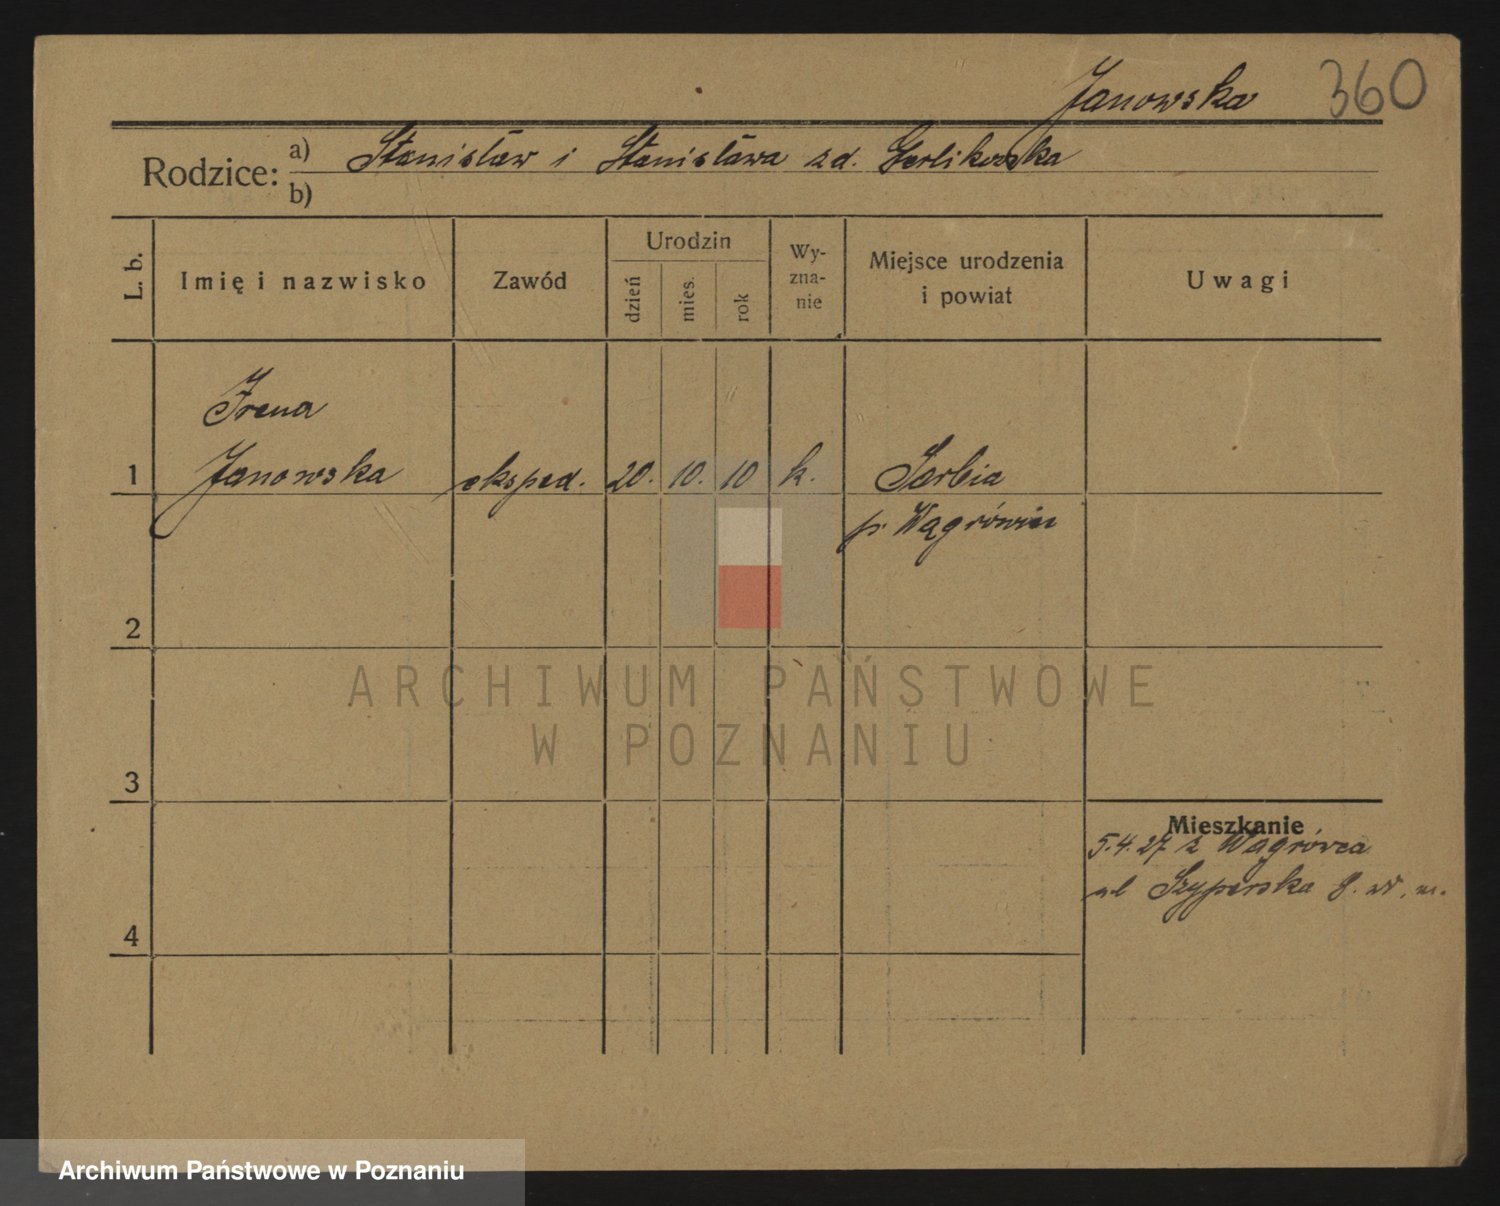 Janowska 360
Rodzice: a) Stanisław i Stanisława zd. Gerlikowska
b)
L. b. Imię i nazwisko Zawód Urodzin dzień mies. rok Wy-zna-nie Miejsce urodzenia i powiat Uwagi
Irena
1 Janowska eksped. 20. 10. 10 k. Sarbia
p. Wągrówiec
2
ARCHIWUM PAŃSTWOWE
W POZNANIU
3
Mieszkanie
5.4.27 z Wągrówca
ul Szyperska 8.
4
Archiwum Państwowe w Poznaniu